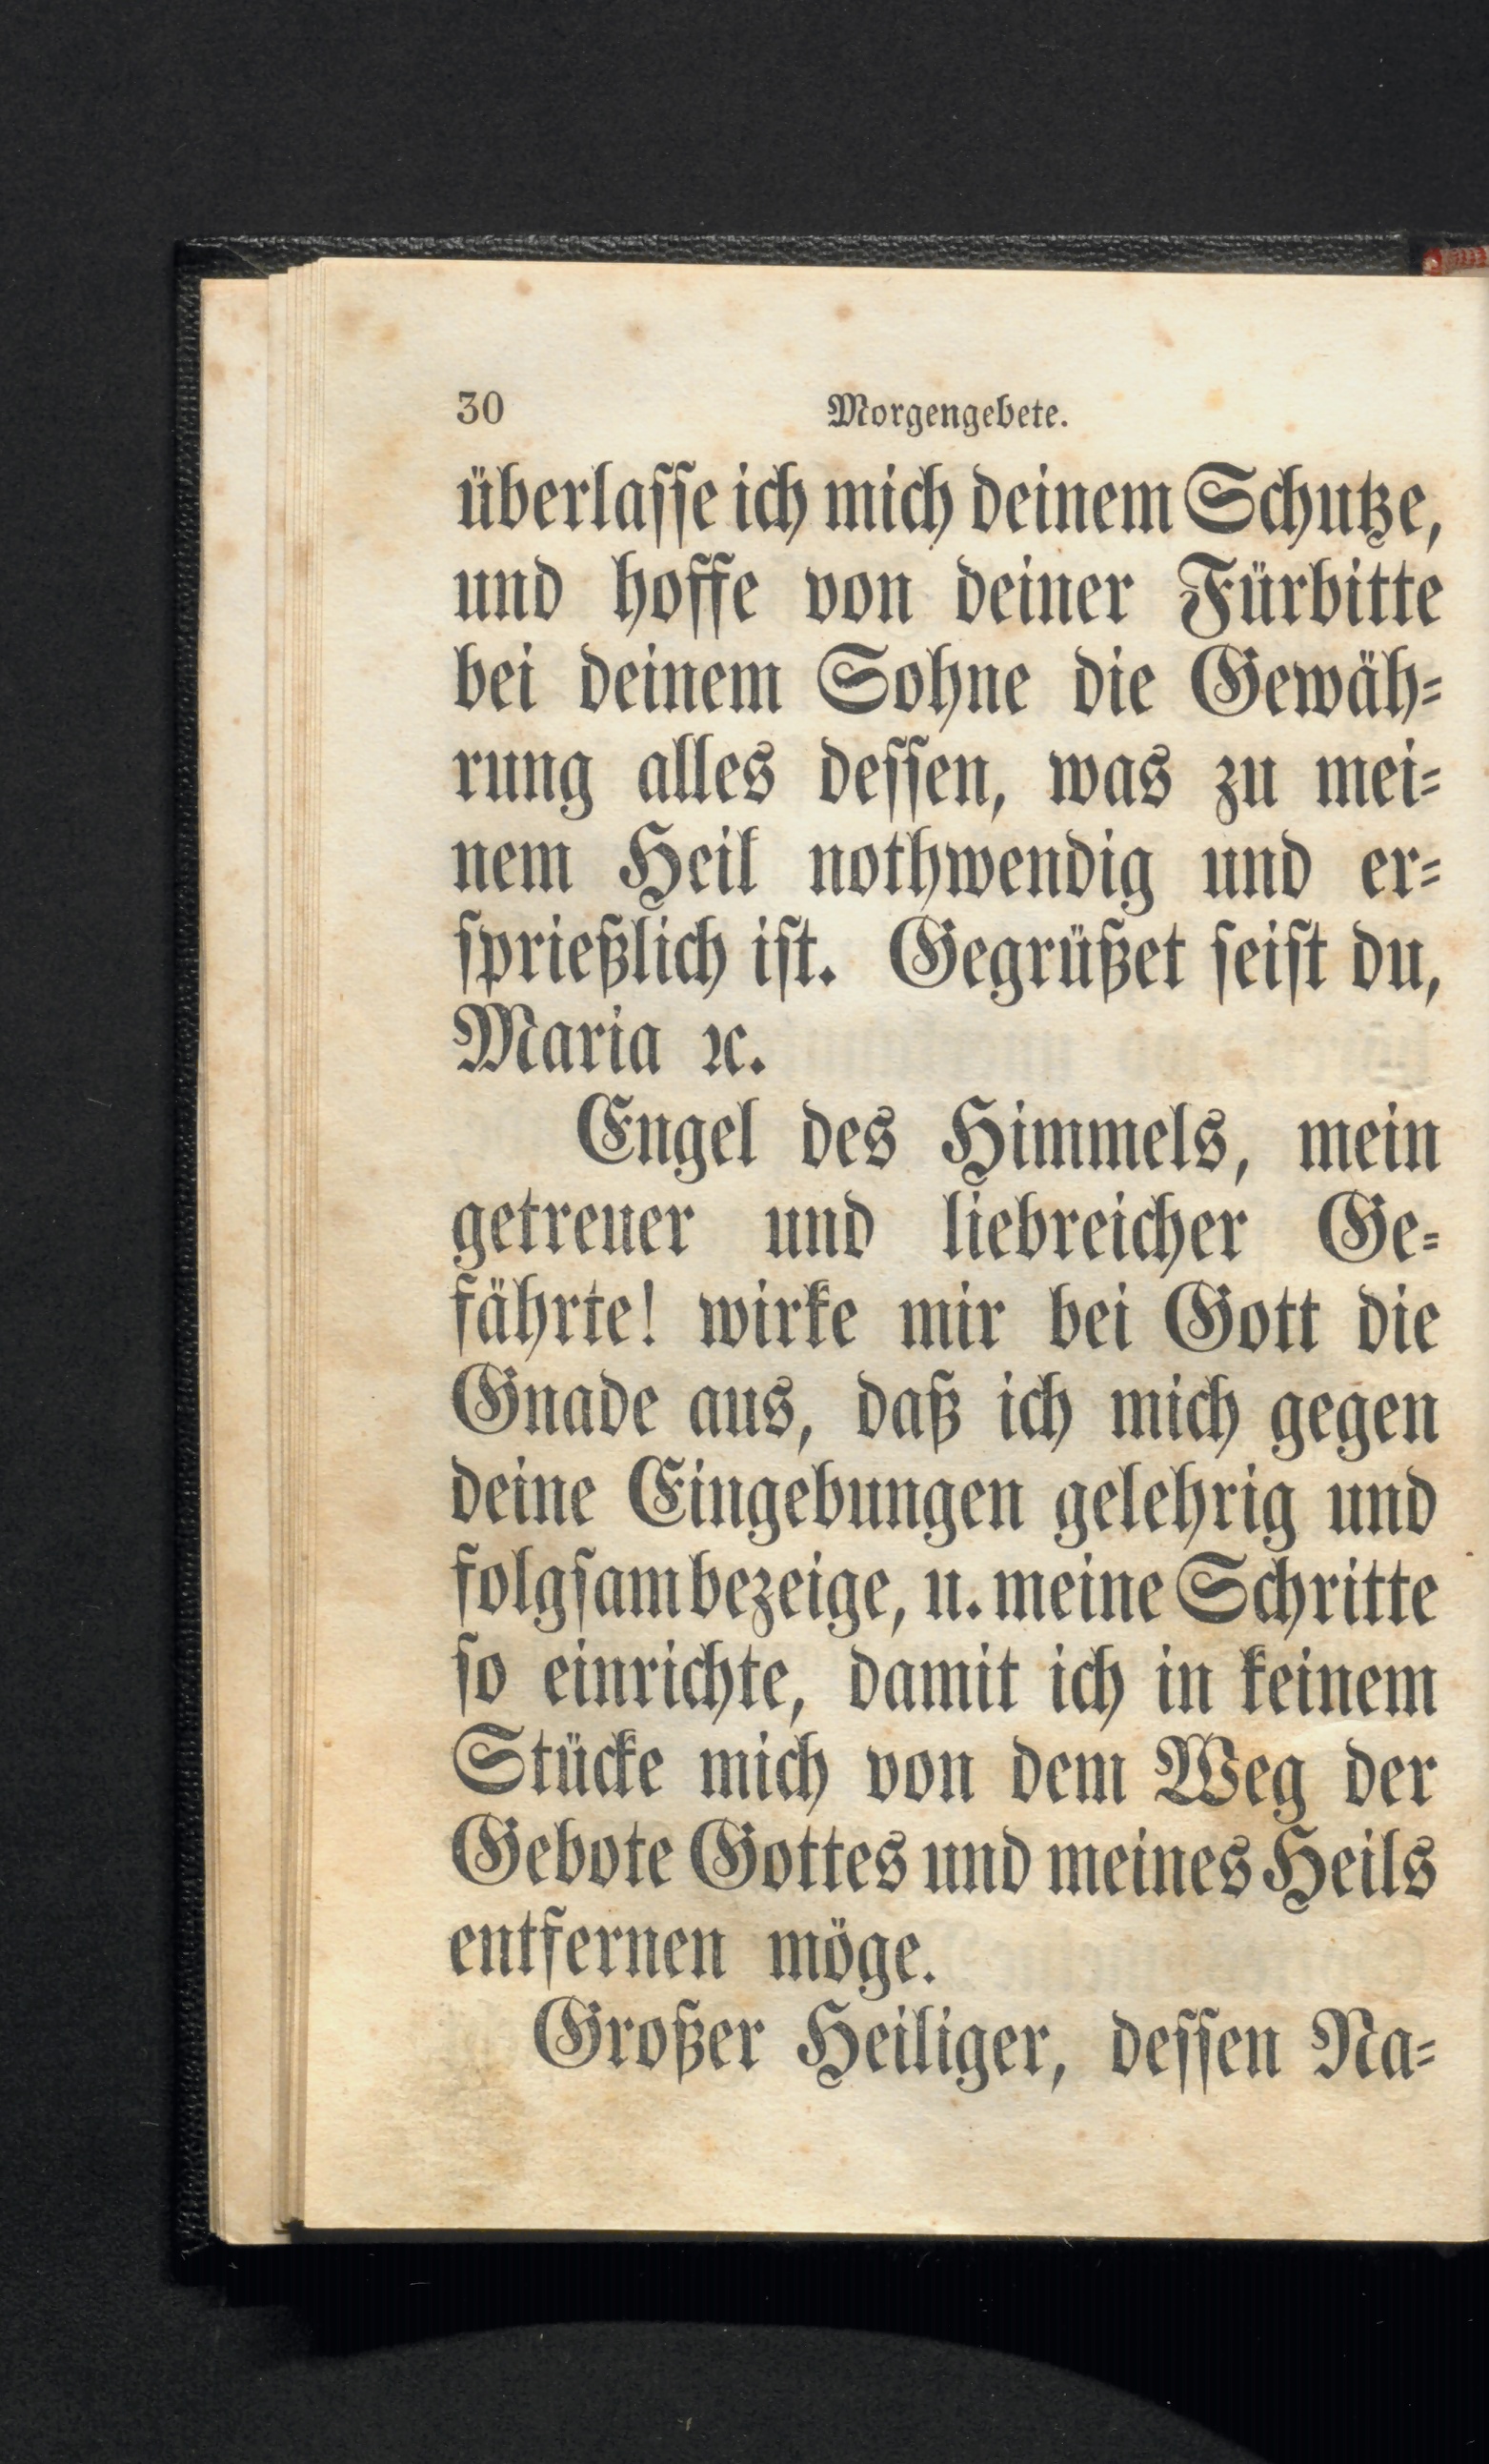 30 Morgengebete.
überlaſſe ich mich deinem Schutze,
und hoffe von deiner Fürbitte
bei deinem Sohne die Gewäh⸗
rung alles deſſen, was zu mei⸗
nem Heil nothwendig und er⸗
ſprießlich iſt. Gegrüßet ſeiſt du,
Maria ꝛc.
Engel des Himmels, mein
getreuer und liebreicher Ge⸗
fährte! wirke mir bei Gott die
Gnade aus, daß ich mich gegen
deine Eingebungen gelehrig und
folgſam bezeige, u. meine Schritte
ſo einrichte, damit ich in keinem
Stücke mich von dem Weg der
Gebote Gottes und meines Heils
entfernen möge.
Großer Heiliger, deſſen Na⸗